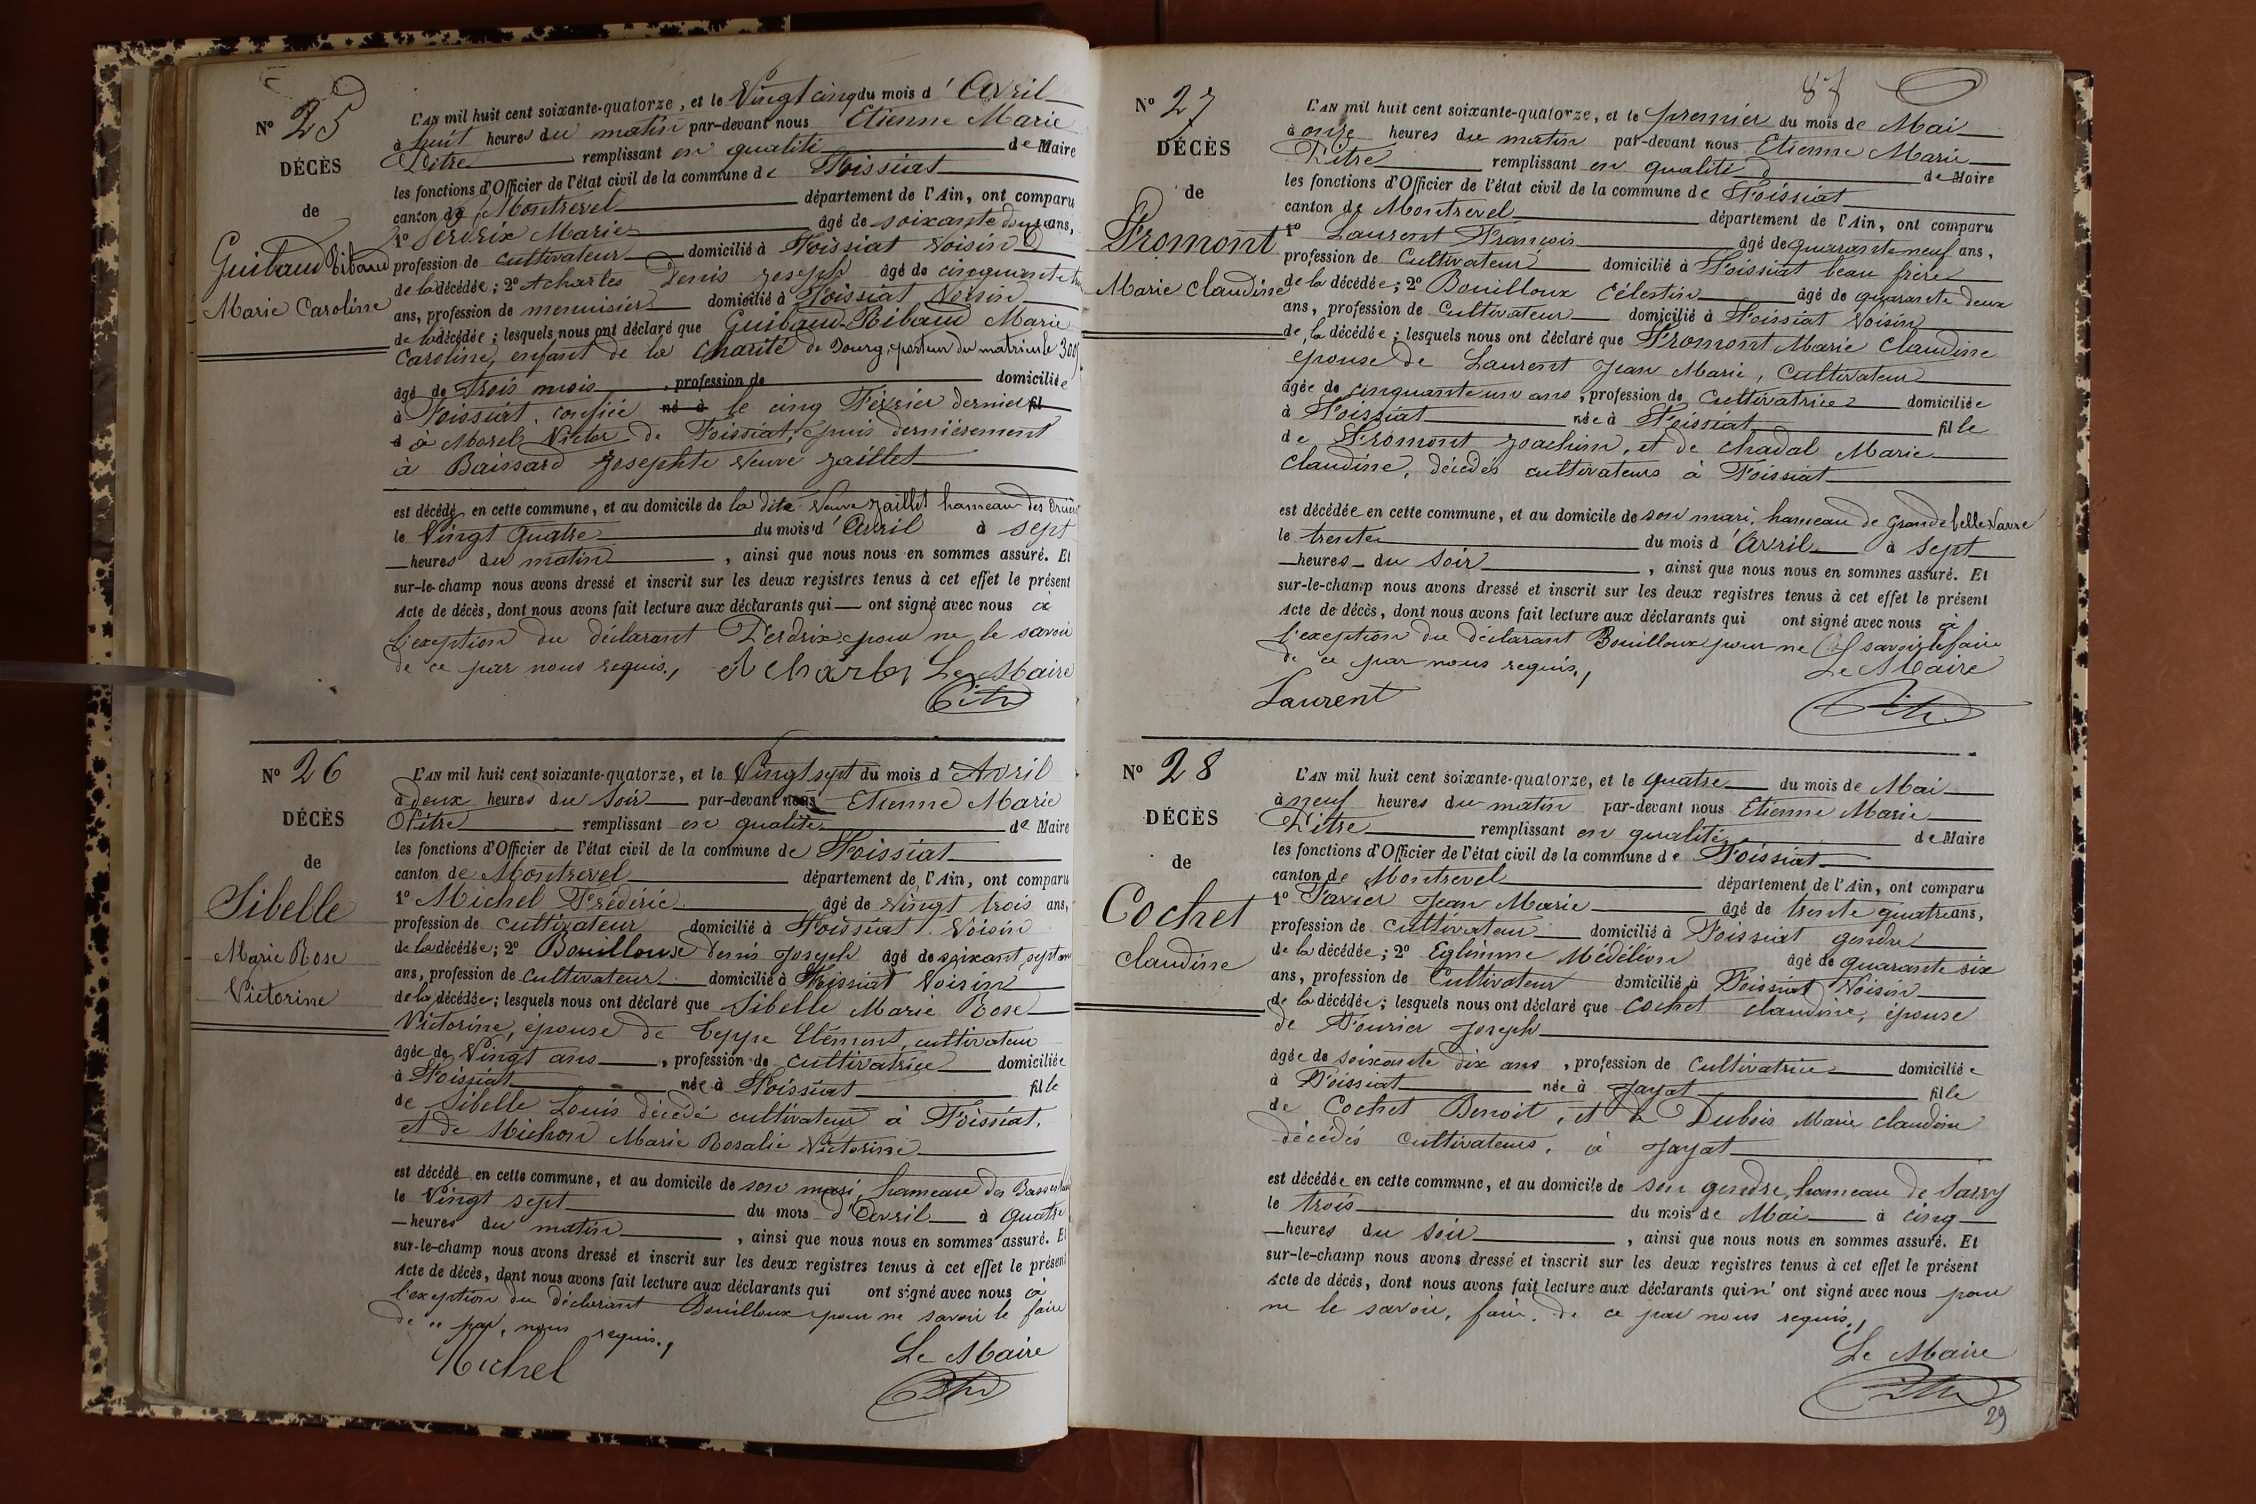 N° 25
DÉCÈS
de
Guibaud Ribaud
Marie Caroline
L'AN mil huit cent soixante-quatorze, et le Vingt cinq du mois d'Avril
à huit heures du matin par-devant nous Etienne Marie
Pitre remplissant en qualité de Maire
les fonctions d'Officier de l'état civil de la commune de Foissiat
canton de Montrevel département de l'Ain, ont comparu
1° Perdrix Marie âgé de soixante deux ans,
profession de cultivateur domicilié à Foissiat voisin
de la décédée; 2° Acharles Denis Joseph âgé de cinquante
ans, profession de menuisier domicilié à Foissiat Voisin
de la décédée; lesquels nous ont déclaré que Guibaud-Ribaud Marie
Caroline, enfant de la Charité de Bourg, porteur du matricule
âgé de trois mois, profession de domiciliée
à Foissiat, confiée né à le cinq Février dernier fil
d à Morel Victor de Foissiat, puis dernièrement
à Baissard Josephte Veuve Jaillet
est décédé en cette commune, et au domicile de la dite Veuve Jaillet hameau des
le Vingt Quatre du mois d'Avril à sept
heures du matin, ainsi que nous nous en sommes assuré. Et
sur-le-champ nous avons dressé et inscrit sur les deux registres tenus à cet effet le présent
Acte de décès, dont nous avons fait lecture aux déclarants qui ont signé avec nous à
l'exception du déclarant Perdrix pour ne le savoir
de ce par nous requis., Le Maire
Pitre
N° 26
DÉCÈS
de
Sibelle
Marie Rose
Victorine
L'AN mil huit cent soixante-quatorze, et le Vingt sept du mois d'Avril
à deux heures du soir par-devant nous Etienne Marie
Pitre remplissant en qualité de Maire
les fonctions d'Officier de l'état civil de la commune de Foissiat
canton de Montrevel département de l'Ain, ont comparu
1° Michel Frédéric âgé de vingt trois ans,
profession de cultivateur domicilié à Foissiat Voisin
de la décédée; 2° Bouilloux denis Joseph âgé de soixant sept ans
ans, profession de cultivateur domicilié à Foissiat Voisin
de la décédée; lesquels nous ont déclaré que Sibelle Marie Rose
Victorine, épouse de Teppe Clément, cultivateur
âgée de Vingt ans, profession de cultivatrice domiciliée
à Foissiat née à Foissiat fille
de Sibelle Louis décédé cultivateur à Foissiat,
et de Michon Marie Rosalie Victorine
est décédé en cette commune, et au domicile de son mari, hameau des
le Vingt sept du mois d'Avril à quatre
heures du matin, ainsi que nous nous en sommes assuré. Et
sur-le-champ nous avons dressé et inscrit sur les deux registres tenus à cet effet le présent
Acte de décès, dont nous avons fait lecture aux déclarants qui ont signé avec nous à
l'exception du déclarant Bouilloux pour ne savoir le faire
de ce par nous requis.,
Michel Le Maire
Pitre
87
N° 27
DÉCÈS
de
Fromont
Marie Claudine
L'AN mil huit cent soixante-quatorze, et le premier du mois de Mai
à onze heures du matin par-devant nous Etienne Marie
Pitre remplissant en qualité d de Maire
les fonctions d'Officier de l'état civil de la commune de Foissiat
canton de Montrevel département de l'Ain, ont comparu
1° Laurent François âgé de quarante neuf ans,
profession de Cultivateur domicilié à Foissiat beau frère
de la décédée; 2° Bouilloux Célestin âgé de quarante deux
ans, profession de Cultivateur domicilié à Foissiat Voisin
de la décédée; lesquels nous ont déclaré que Fromont Marie Claudine
épouse de Laurent Jean Marie, Cultivateur
âgée de cinquante un ans, profession de Cultivatrice domiciliée
à Foissiat née à Foissiat fille
de Fromont Joachim, et de Chadal Marie
Claudine, décédés cultivateurs à Foissiat
est décédée en cette commune, et au domicile de son mari, hameau de Grande
le trente du mois d'Avril à sept
heures du soir, ainsi que nous nous en sommes assuré. Et
sur-le-champ nous avons dressé et inscrit sur les deux registres tenus à cet effet le présent
Acte de décès, dont nous avons fait lecture aux déclarants qui ont signé avec nous à
l'exception du déclarant Bouilloux pour ne savoir le faire
de ce par nous requis., Le Maire
Laurent Pitre
N° 28
DÉCÈS
de
Cochet
Claudine
L'AN mil huit cent soixante-quatorze, et le quatre du mois de Mai
à neuf heures du matin par-devant nous Etienne Marie
Pitre remplissant en qualité de Maire
les fonctions d'Officier de l'état civil de la commune de Foissiat
canton de Montrevel département de l'Ain, ont comparu
1° Favier Jean Marie âgé de trente quatre ans,
profession de cultivateur domicilié à Foissiat gendre
de la décédée; 2° Eglénime Médéléon âgé de quarante six
ans, profession de Cultivateur domicilié à Foissiat Voisin
de la décédée; lesquels nous ont déclaré que Cochet Claudine, épouse
de Fourier Joseph
âgée de soixante dix ans, profession de Cultivatrice domiciliée
à Foissiat née à Jayat fille
de Cochet Benoit, et de Dubois Marie Claudine
décédés cultivateurs, à Jayat
est décédée en cette commune, et au domicile de son gendre, hameau de
le trois du mois de Mai à cinq
heures du soir, ainsi que nous nous en sommes assuré. Et
sur-le-champ nous avons dressé et inscrit sur les deux registres tenus à cet effet le présent
Acte de décès, dont nous avons fait lecture aux déclarants qui n'ont signé avec nous pour
ne le savoir, faire, de ce par nous requis.,
Le Maire
Pitre
29